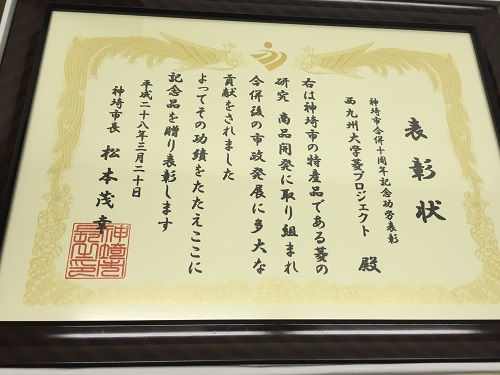 表彰状
神埼市合併十周年記念功労表彰
西九州大学菱プロジェクト 殿
右は神埼市の特産品である菱の
研究 商品開発に取り組まれ
合併後の市政発展に多大な
貢献をされました
よってその功績をたたえここに
記念品を贈り表彰します
平成二十八年三月二十日
神埼市長 松本茂幸